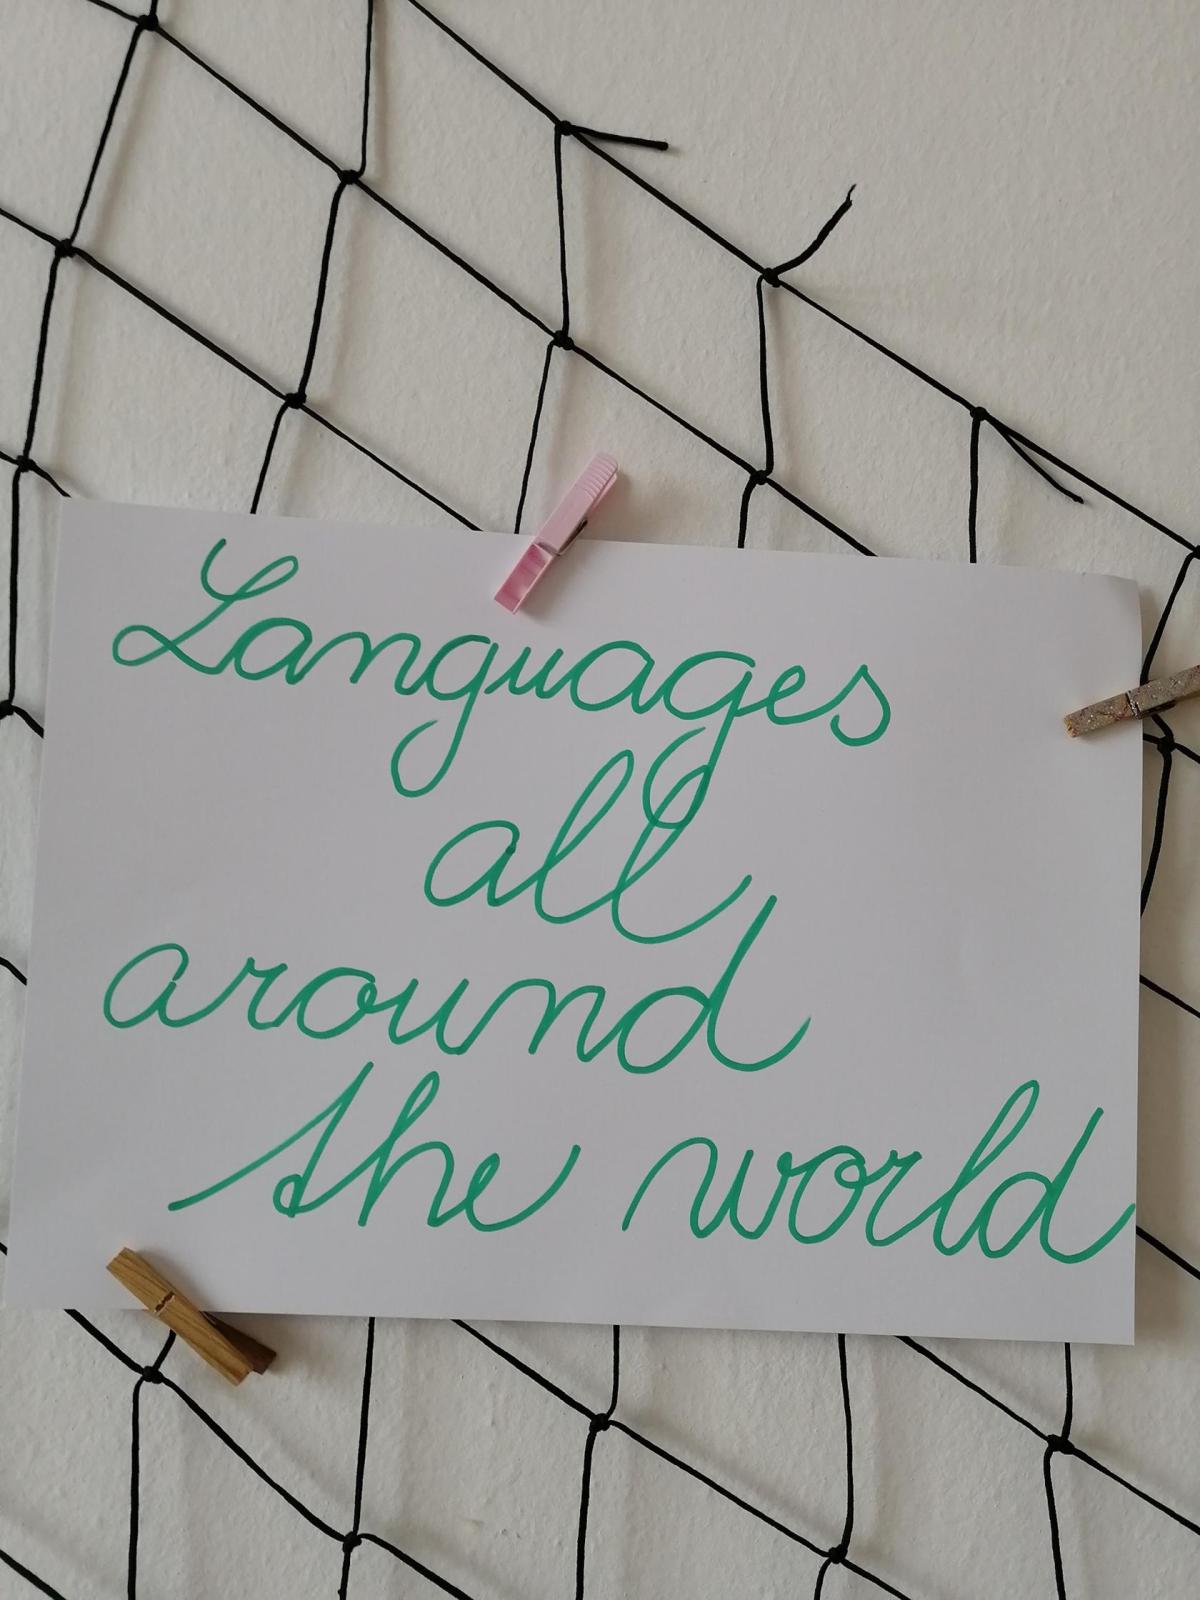 Languages
all
around
the world